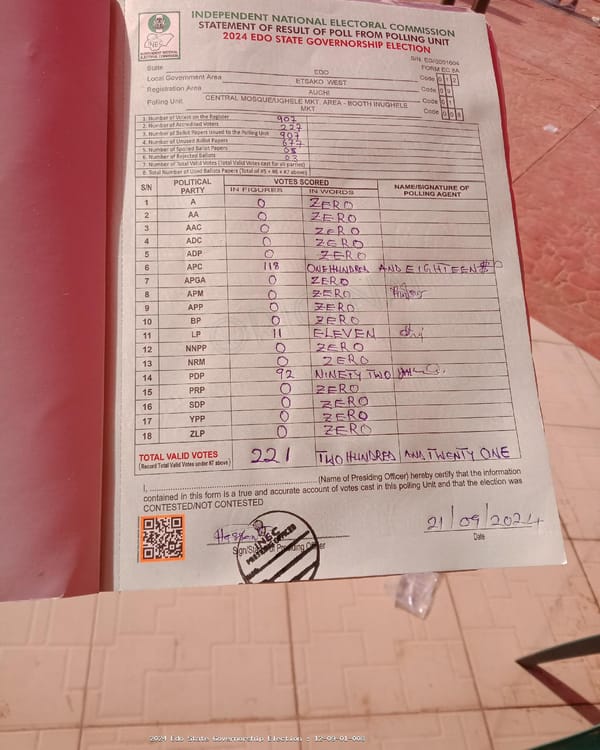 INDEPENDENT NATIONAL ELECTORAL COMMISSION
STATEMENT OF RESULT OF POLL FROM POLLING UNIT
2024 EDO STATE GOVERNORSHIP ELECTION
FORM EC 8A
State EDO Code 012
Local Government Area ETSAKO WEST Code 09
Registration Area AUCHI Code 01
Polling Unit CENTRAL MOSQUE/UGHELE MKT. AREA - BOOTH INUGHELE MKT Code 008
1. Number of Voters on the Register 907
2. Number of Accredited Voters 227
3. Number of Ballot Papers Issued to the Polling Unit 907
4. Number of Unused Ballot Papers 677
5. Number of Spoiled Ballot Papers
6. Number of Rejected Ballots 03
7. Number of Total Valid Votes (Total Valid Votes cast for all parties)
8. Total Number of Used Ballots Papers (Total of #5 + #6 + #7 above)
S/N POLITICAL PARTY VOTES SCORED NAME/SIGNATURE OF POLLING AGENT
IN FIGURES IN WORDS
1 A 0 ZERO
2 AA 0 ZERO
3 AAC 0 ZERO
4 ADC 0 ZERO
5 ADP 0 ZERO
6 APC 118 ONE HUNDRED AND EIGHTEEN
7 APGA 0 ZERO
8 APM 0 ZERO
9 APP 0 ZERO
10 BP 0 ZERO
11 LP 11 ELEVEN
12 NNPP 0 ZERO
13 NRM 0 ZERO
14 PDP 92 NINETY TWO
15 PRP 0 ZERO
16 SDP 0 ZERO
17 YPP 0 ZERO
18 ZLP 0 ZERO
TOTAL VALID VOTES 221 TWO HUNDRED AND TWENTY ONE
(Record Total Valid Votes under #7 above)
I, (Name of Presiding Officer) hereby certify that the information
contained in this form is a true and accurate account of votes cast in this polling Unit and that the election was
CONTESTED/NOT CONTESTED
21/09/2024
Date
INEC
PRESIDING OFFICER
2024 Edo State Governorship Election - 12-09-01-008